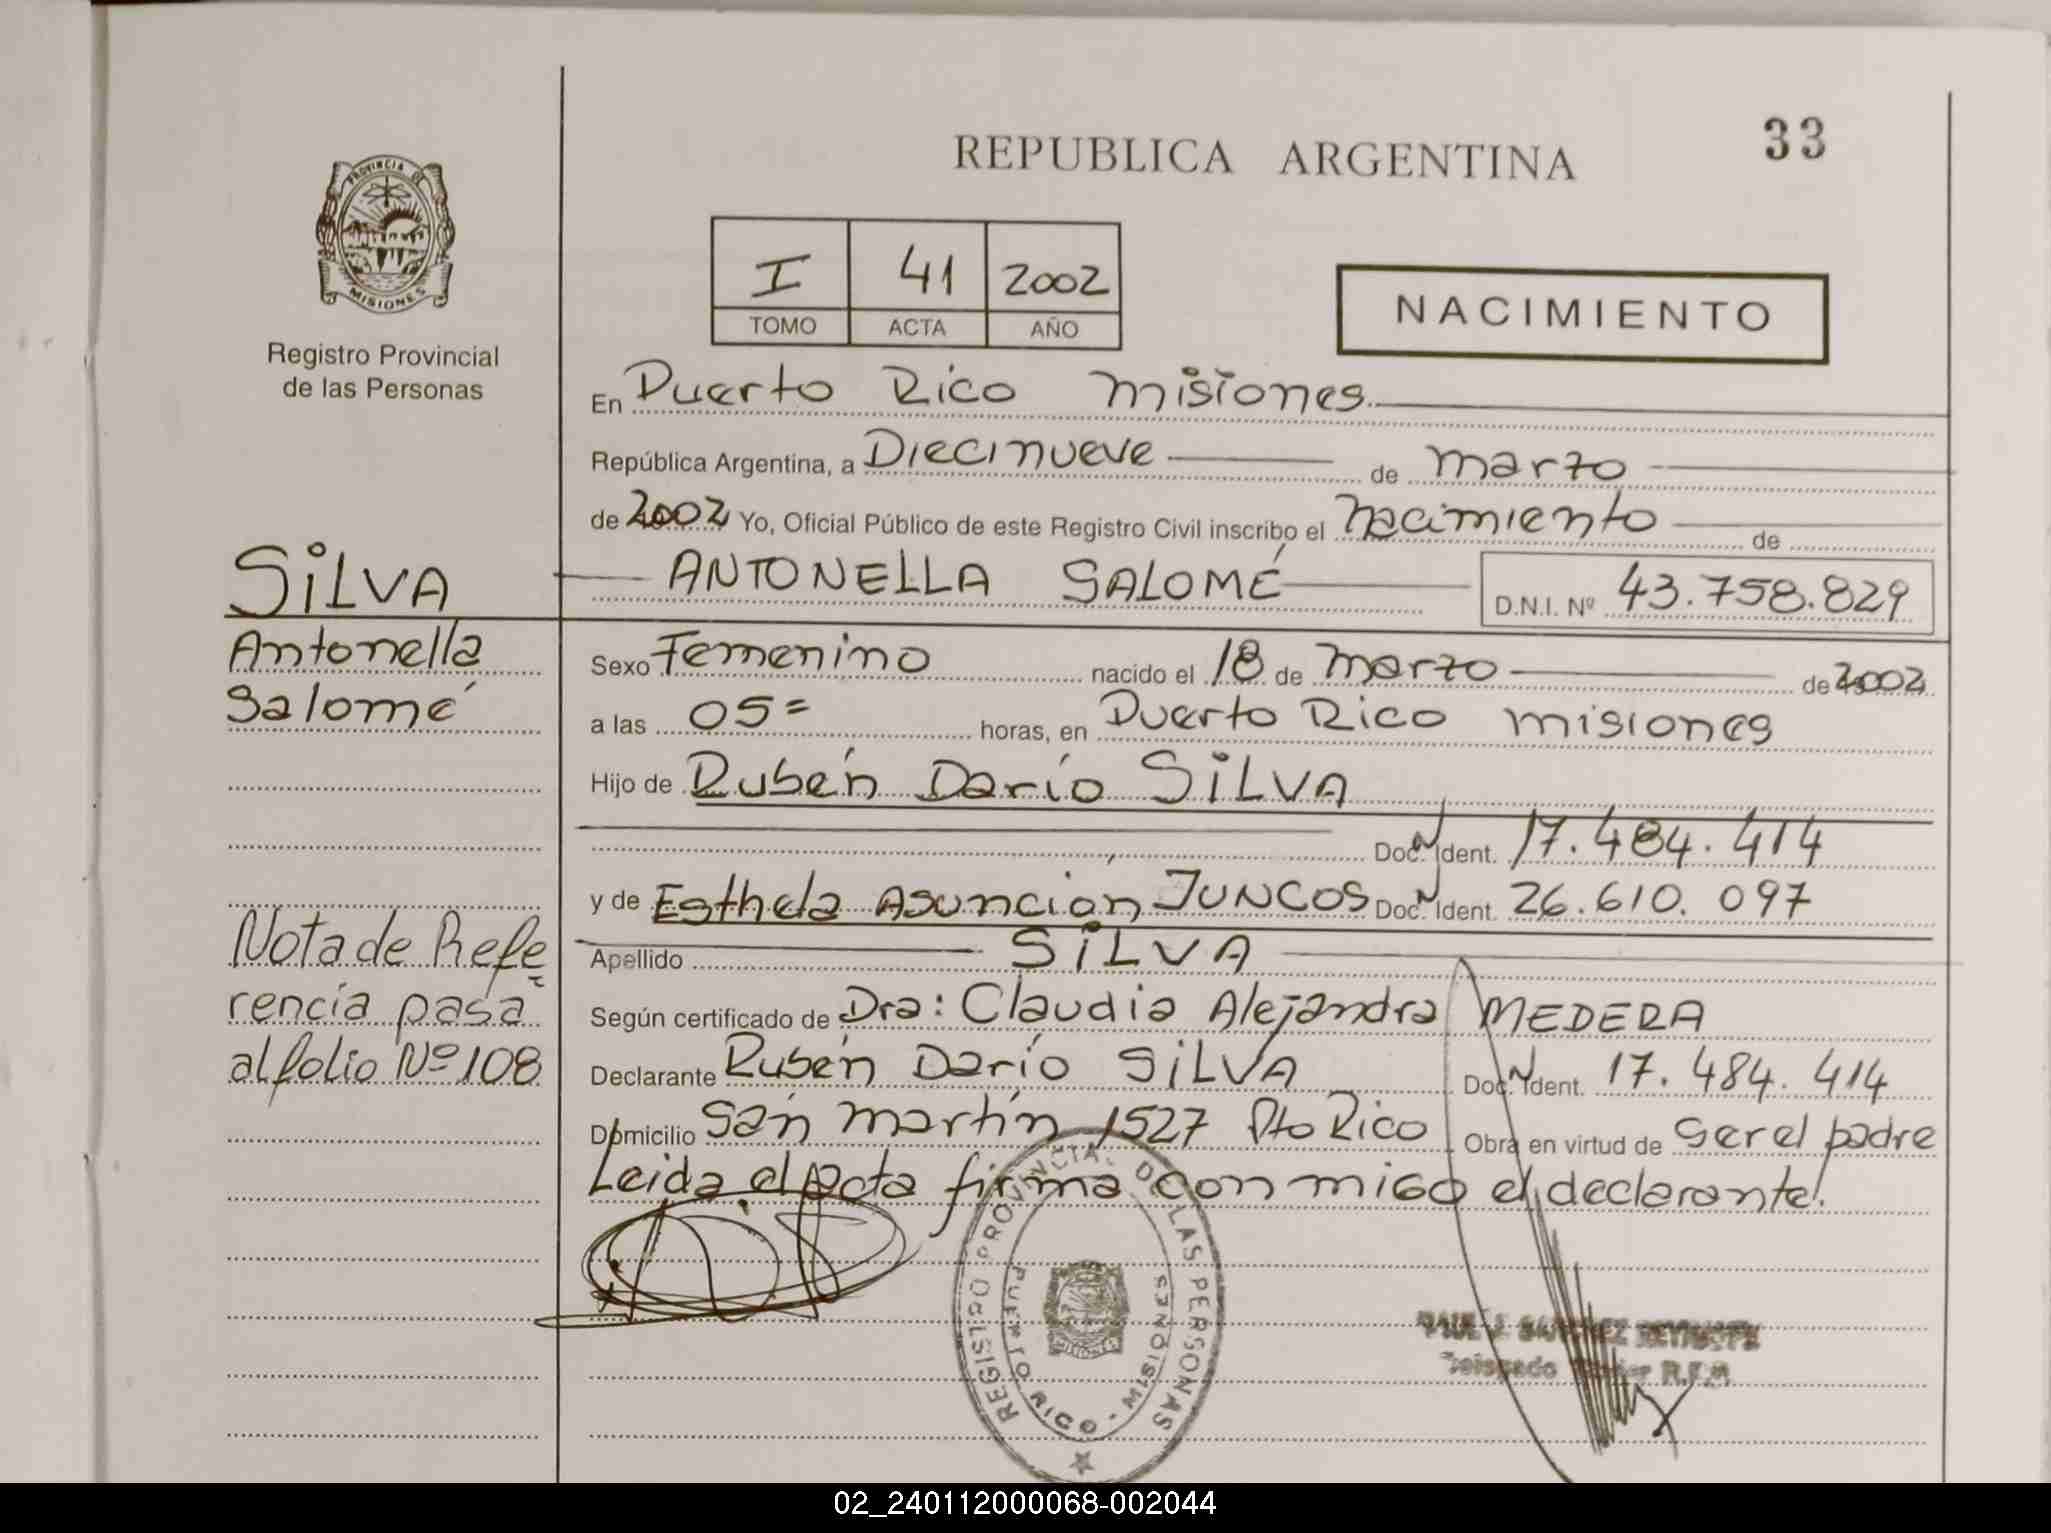 REPUBLICA ARGENTINA
33
PROVINCIA DE
MISIONES
Registro Provincial
de las Personas
I 41 2002
TOMO ACTA AÑO
NACIMIENTO
En Puerto Rico Misiones
República Argentina, a Diecinueve de marzo
de 2002 Yo, Oficial Público de este Registro Civil inscribo el nacimiento de
ANTONELLA SALOMÉ D.N.I. Nº 43.758.829
SILVA
Antonella
Salomé
Sexo Femenino nacido el 18 de marzo de 2002
a las 05= horas, en Puerto Rico misiones
Hijo de Rubén Darío SILVA
Doc. Ident. 17.484.414
y de Esthela Asunción JUNCOS Doc. Ident. 26.610.097
Apellido SILVA
Según certificado de Dra: Claudia Alejandra MEDERA
Declarante Rubén Darío SILVA Doc. Ident. 17.484.414
Domicilio San martín 1527 Pto Rico Obra en virtud de ser el padre
Leida el acta firma con migo el declarante.
Nota de Refe
rencia pasa
al folio Nº 108
REGISTRO PROVINCIAL DE LAS PERSONAS
PUERTO RICO - MISIONES
02_240112000068-002044